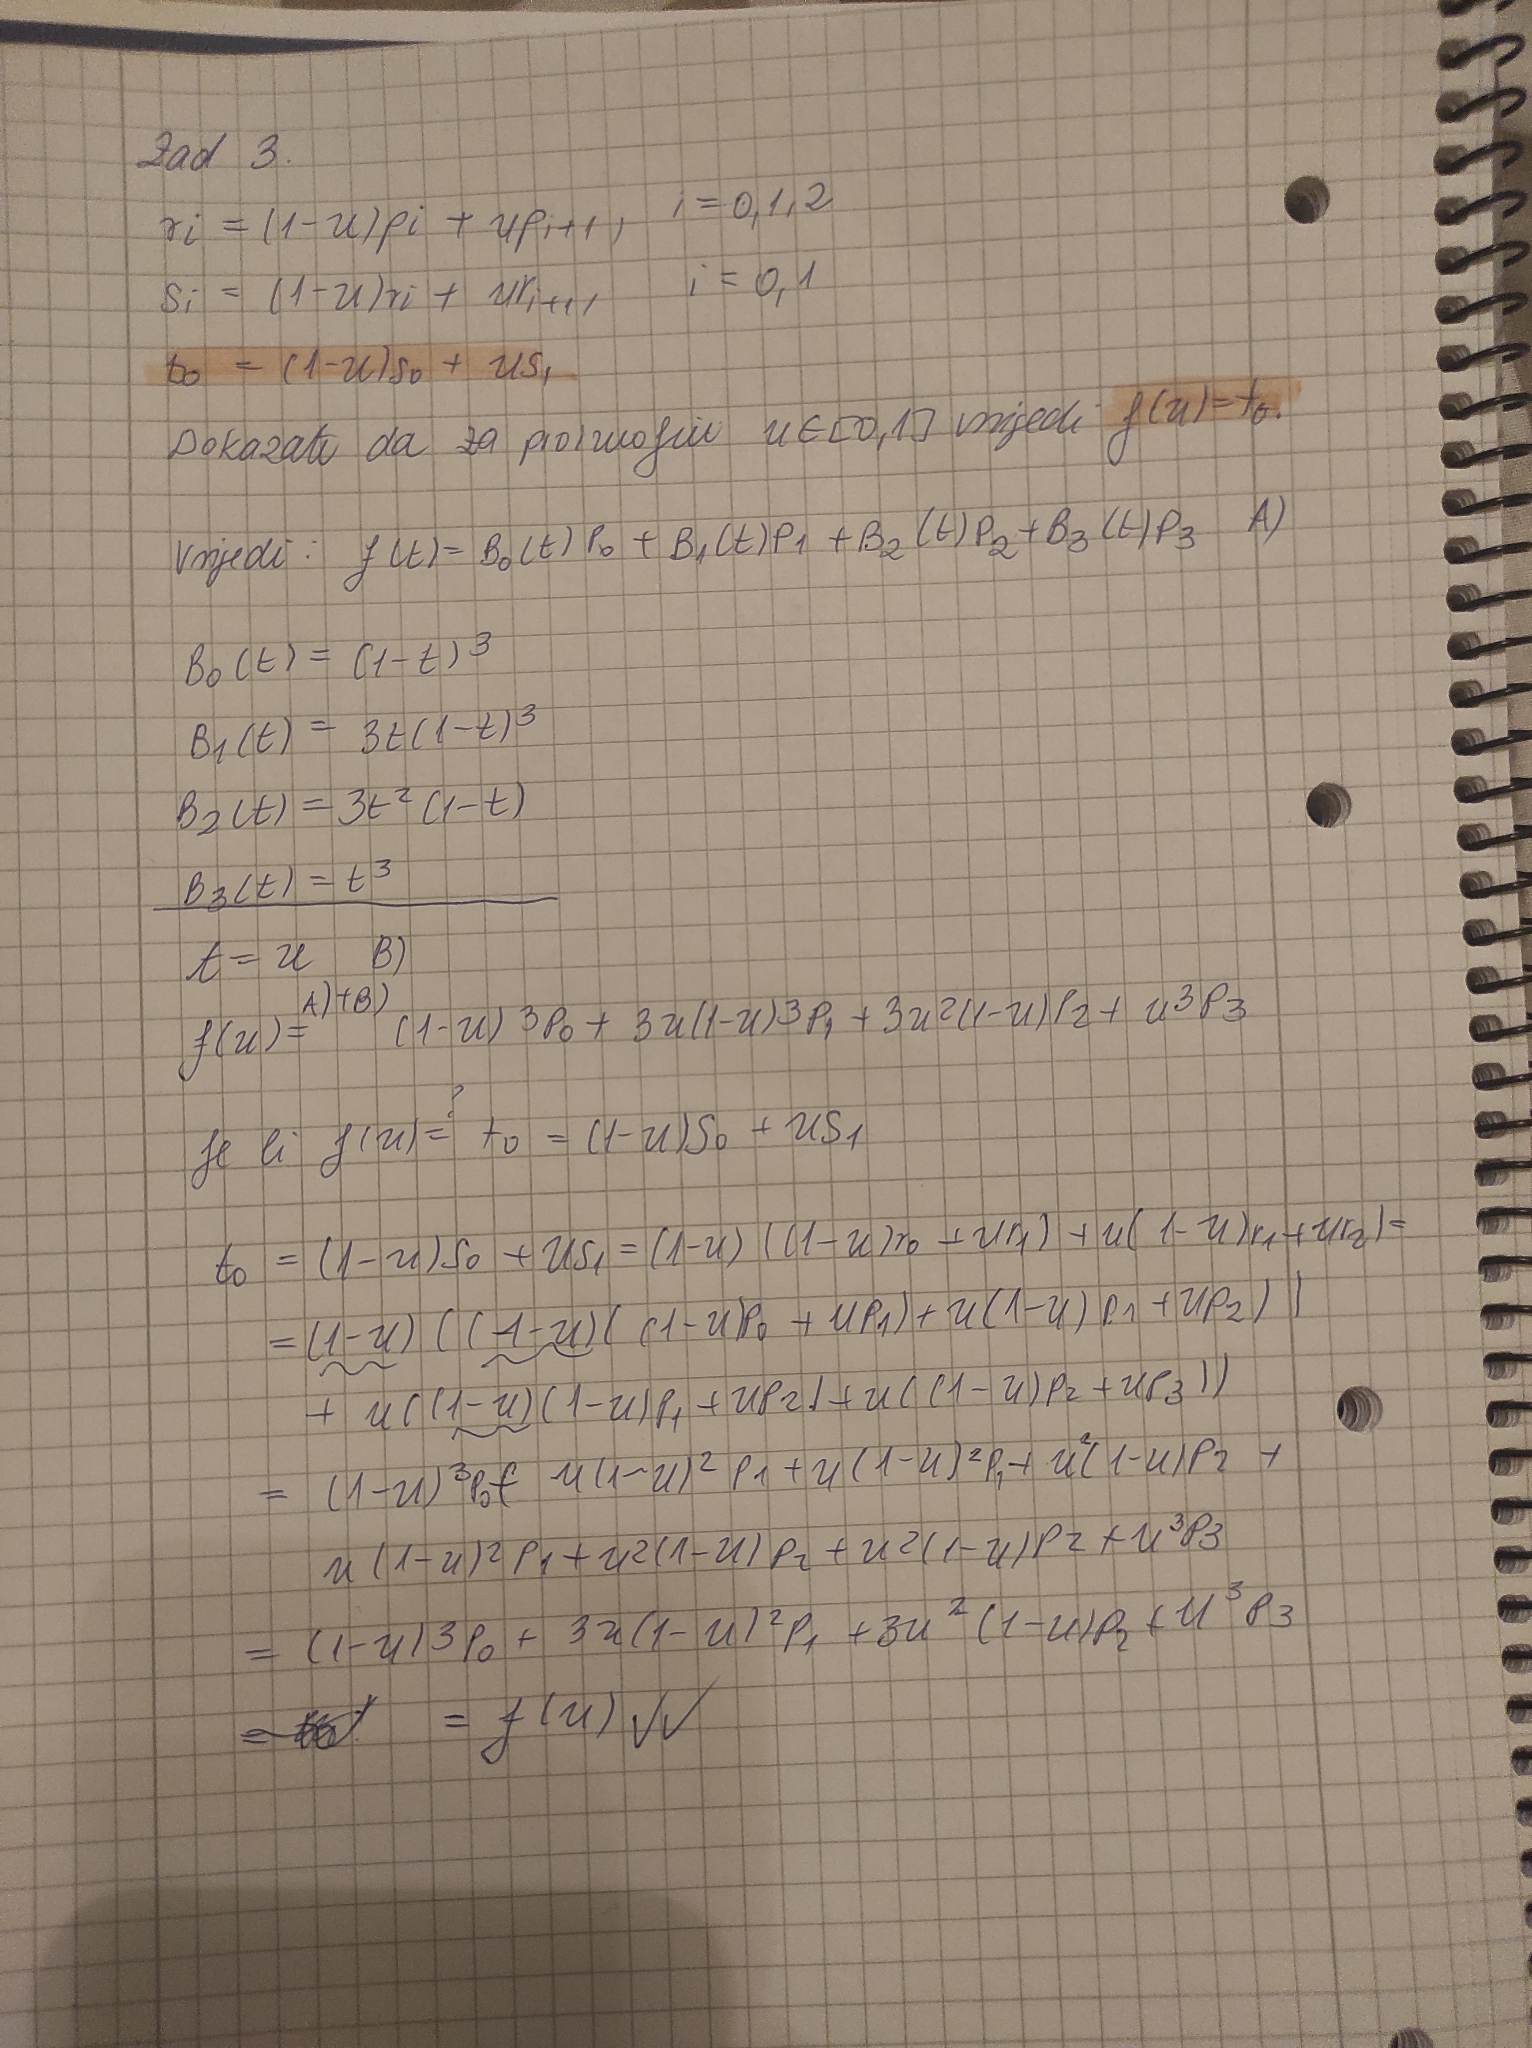 Zad 3.
ri = (1-u)pi + upi+1, i=0,1,2
si = (1-u)ri + uri+1, i=0,1
t0 = (1-u)s0 + us1
Dokazati da za proizvoljni u∈[0,1] vrijedi f(u)=t0.
Vrijedi: f(t)=B0(t)P0+B1(t)P1+B2(t)P2+B3(t)P3 A)
B0(t)=(1-t)³
B1(t)= 3t(1-t)³
B2(t)=3t²(1-t)
B3(t)=t³
t=u B)
A)+B)
f(u)= (1-u)³P0+3u(1-u)³P1+3u²(1-u)P2+u³P3
Je li f(u)=? t0 =(1-u)S0+uS1
t0 =(1-u)S0+uS1=(1-u)((1-u)r0+ur1)+u(1-u)r1+ur2)=
=(1-u)((1-u)((1-u)P0+uP1)+u(1-u)P1+uP2))
+u((1-u)(1-u)P1+uP2)+u((1-u)P2+uP3))
= (1-u)³P0+ u(1-u)²P1+u(1-u)²P1+u²(1-u)P2 +
u(1-u)²P1+u²(1-u)P2+u²(1-u)P2+u³P3
= (1-u)³P0+ 3u(1-u)²P1 +3u²(1-u)P2+u³P3
= = f(u) ✓✓